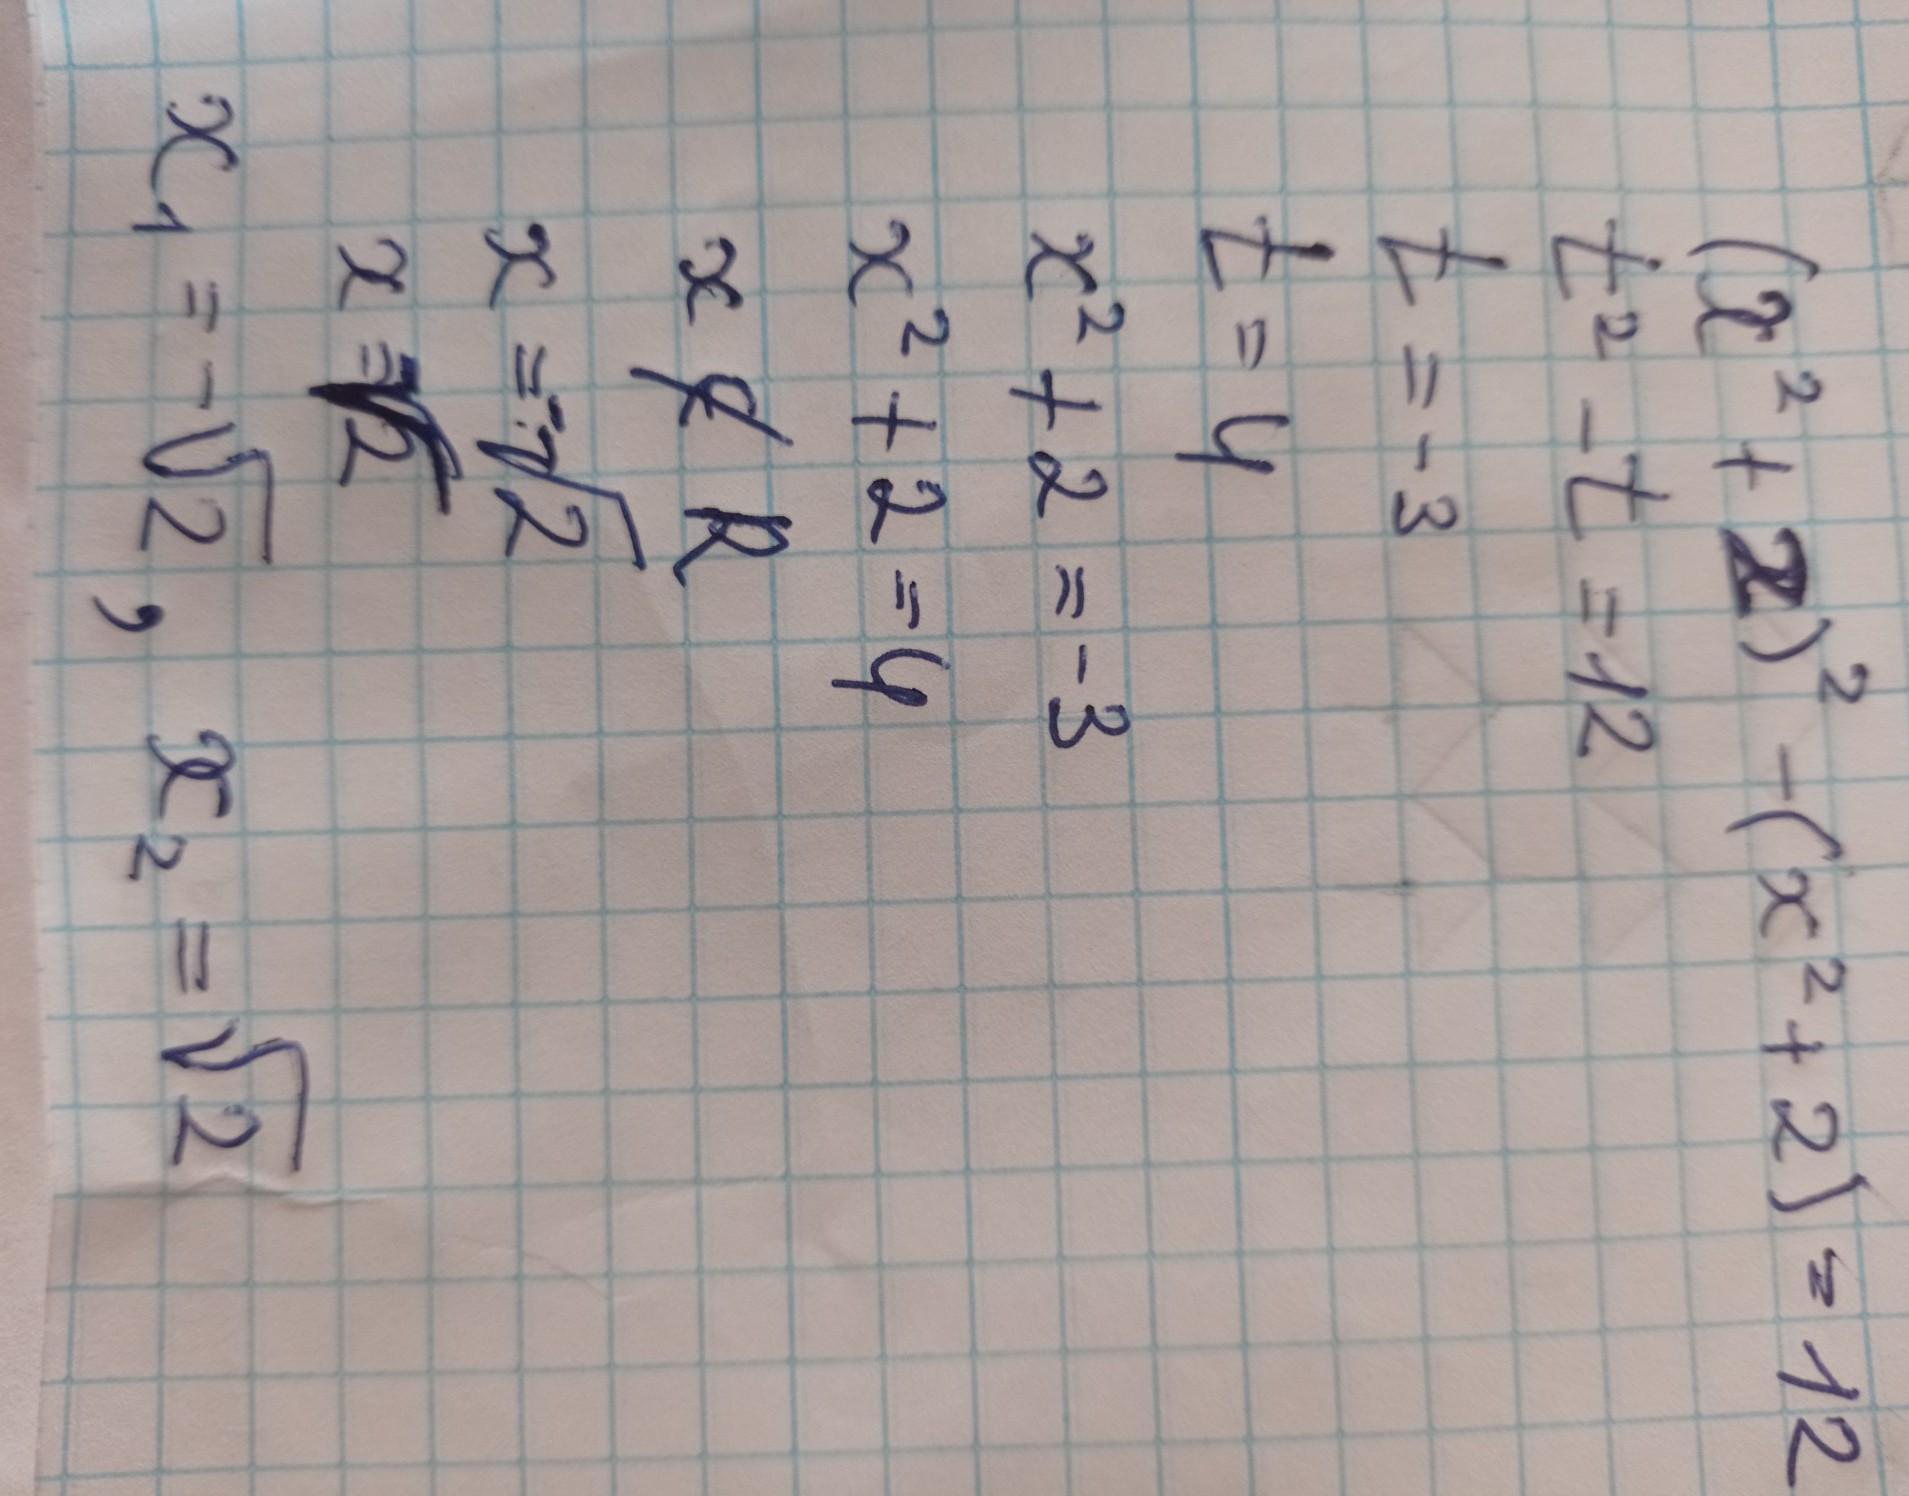 (x² + 2)² - (x² + 2) = 12
t² - t = 12
t = -3
t = 4
x² + 2 = -3
x² + 2 = 4
x ∉ R
x = -√2
x = √2
x₁ = -√2, x₂ = √2